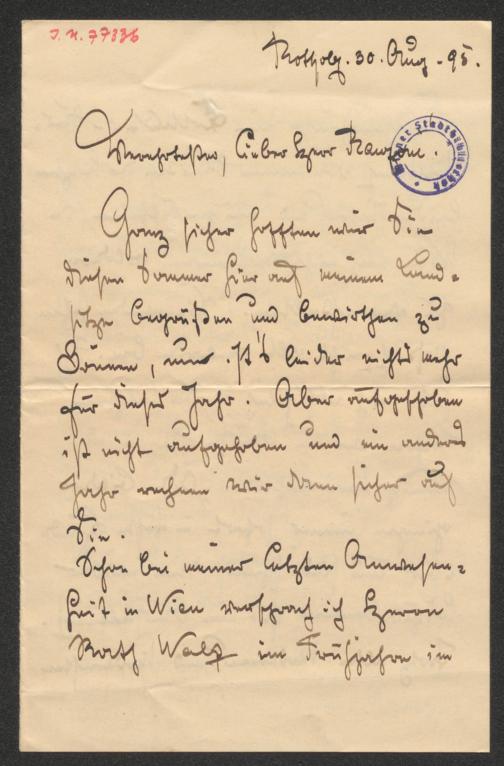 I. N. 77336
Rotholz. 30. Aug. 95.
Wiener Stadtbibliothek
Verehrtester, lieber Herr
Ganz sicher hofften wir Sie
diesen Sommer hier auf meinem Land-
sitze begrüßen und bewirthen zu
können, nun ist's leider nichts mehr
für dieses Jahr. Aber aufgeschoben
ist nicht aufgehoben und ein anderes
Jahr rechnen wir dann sicher auf
Sie.
Schon bei meiner letzten Anwesen-
heit in Wien versprach ich Herrn
Rath im Frühjahre im